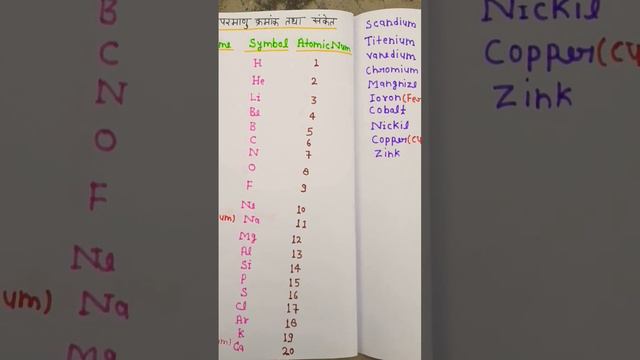 परमाणु क्रमांक तथा संकेत
me Symbol Atomic Num
H 1
He 2
Li 3
Be 4
B 5
C 6
N 7
O 8
F 9
Ne 10
um) Na 11
Mg 12
Al 13
Si 14
P 15
S 16
Cl 17
Ar 18
m) K 19
Ca 20
Scandium
Titenium
Vanedium
Chromium
Mangnize
Ioron (Fer
Cobalt
Nickil
Copper (Cu
Zink
B
C
N
O
F
Ne
um) Na
Mg
Nickil
Copper (Cu
Zink